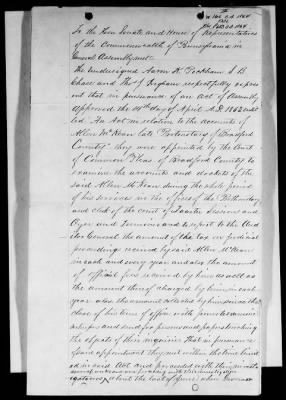 To the Hon Senate and House of Representatives
of the Commonwealth of Pennsylvania in
General Assembly met
The undersigned Aaron K. Peckham J. B
Chase and Thos J Ingham respectfully repre
sent that in pursuance of an act of Assembly
Approved the day of April A.D 1862 entit
led An Act in relation to the accounts of
Allen McKean late Protonotary of Bradford
County they were appointed by the Court
of Common Pleas of Bradford County to
examine the accounts and dockets of the
said Allen McKean during the whole period
of his services in the offices of the Prothonotary
and clerk of the court of Quarter Sessions and
Oyer and Terminer and to report to the Aud
itor General the amount of the tax on judicial
proceedings received by said Allen McKean
in each and every year and also the amount
of official fees received by him as well as
the amount thereof charged by him in each
year also the amount collected by him since the
close of his term of office with power to examine
witnesses and send for persons and papers touching
the objects of their inquiries that in pursuance
of said appointment they met within the time limit
ed in said Act and proceeded with their invest
igations about the last of June when